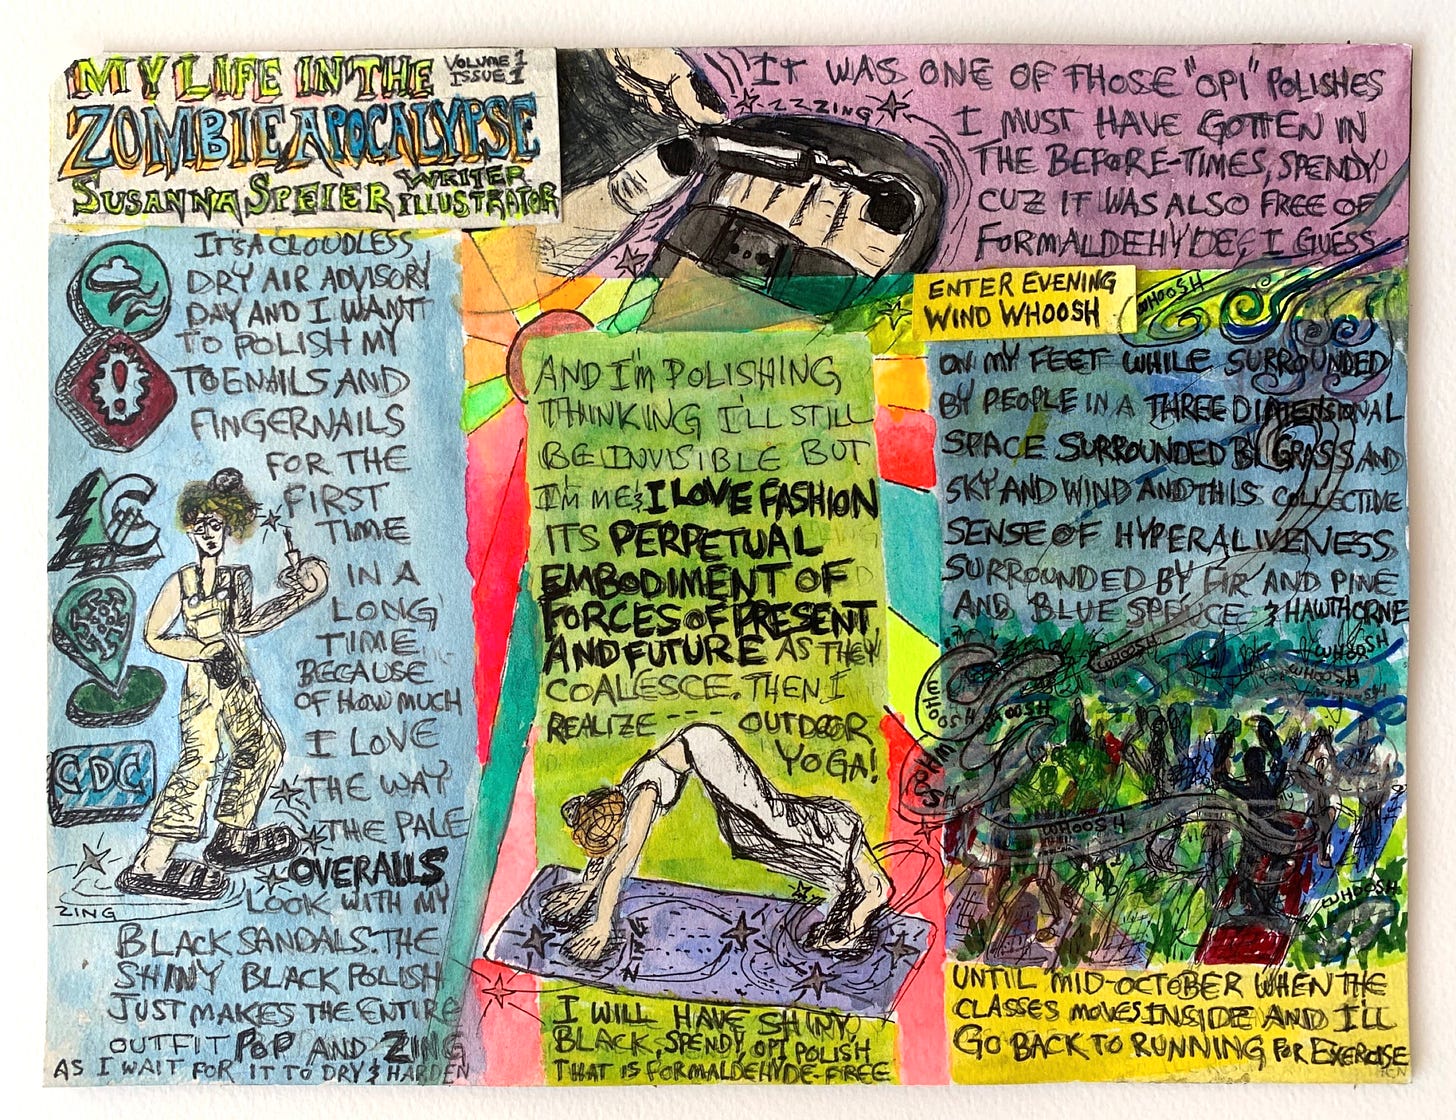 MY LIFE IN THE
VOLUME 1
ISSUE 1
ZOMBIE APOCALYPSE
SUSANNA SPEIER WRITER
ILLUSTRATOR
IT'S A CLOUDLESS
DRY AIR ADVISORY
DAY AND I WANT
TO POLISH MY
TOENAILS AND
FINGERNAILS
FOR THE
FIRST
TIME
IN A
LONG
TIME
BECAUSE
OF HOW MUCH
I LOVE
THE WAY
THE PALE
OVERALLS
LOOK WITH MY
BLACK SANDALS. THE
SHINY BLACK POLISH
JUST MAKES THE ENTIRE
OUTFIT POP AND ZING
AS I WAIT FOR IT TO DRY & HARDEN
CDC
ZING
ZZZZING
IT WAS ONE OF THOSE "OPI" POLISHES
I MUST HAVE GOTTEN IN
THE BEFORE-TIMES, SPENDY
CUZ IT WAS ALSO FREE OF
FORMALDEHYDE, I GUESS
AND I'M POLISHING
THINKING I'LL STILL
BE INVISIBLE BUT
I'M ME & I LOVE FASHION
ITS PERPETUAL
EMBODIMENT OF
FORCES OF PRESENT
AND FUTURE AS THEY
COALESCE. THEN I
REALIZE ---- OUTDOOR
YOGA!
I WILL HAVE SHINY,
BLACK, SPENDY, OPI POLISH
THAT IS FORMALDEHYDE-FREE
ENTER EVENING
WIND WHOOSH
WHOOSH
ON MY FEET WHILE SURROUNDED
BY PEOPLE IN A THREE DIMENSIONAL
SPACE SURROUNDED BY GRASS AND
SKY AND WIND AND THIS COLLECTIVE
SENSE OF HYPERALIVENESS
SURROUNDED BY FIR AND PINE
AND BLUE SPRUCE & HAWTHORNE
WHOOSH
WHOOSH
WHOOSH
WHOOSH
WHOOSH
WHOOSH
UNTIL MID-OCTOBER WHEN THE
CLASSES MOVES INSIDE AND I'LL
GO BACK TO RUNNING FOR EXERCISE